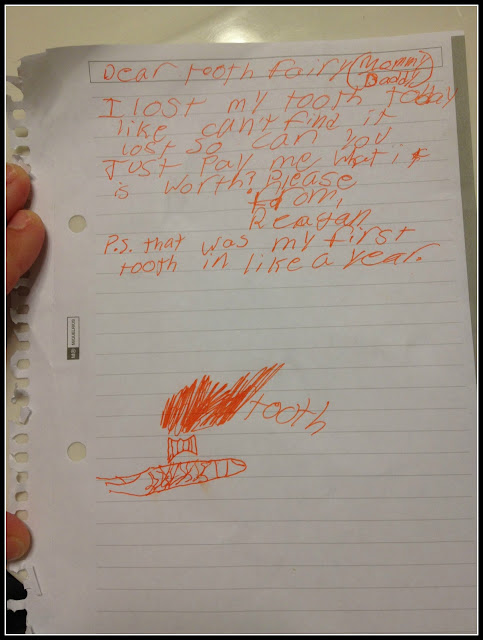 Dear tooth fairy (Mommy
Daddy)
I lost my tooth today
like can't find it
lost so can you
Just Pay me what it
is worth? Please
from,
Reagan
P.S. that was my first
tooth in like a year.
tooth